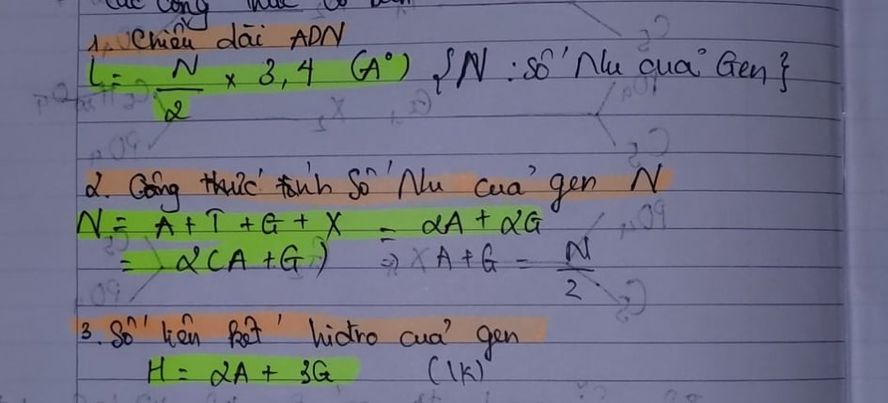 các công thức cơ bản
1. Chiều dài ADN
L = N/2 x 3,4 (A°) {N : số Nu của Gen}
2. Công thức tính Số Nu của gen N
N = A + T + G + X = 2A + 2G
= 2(A + G) => A + G = N/2
3. Số liên kết hidro của gen
H = 2A + 3G (lk)